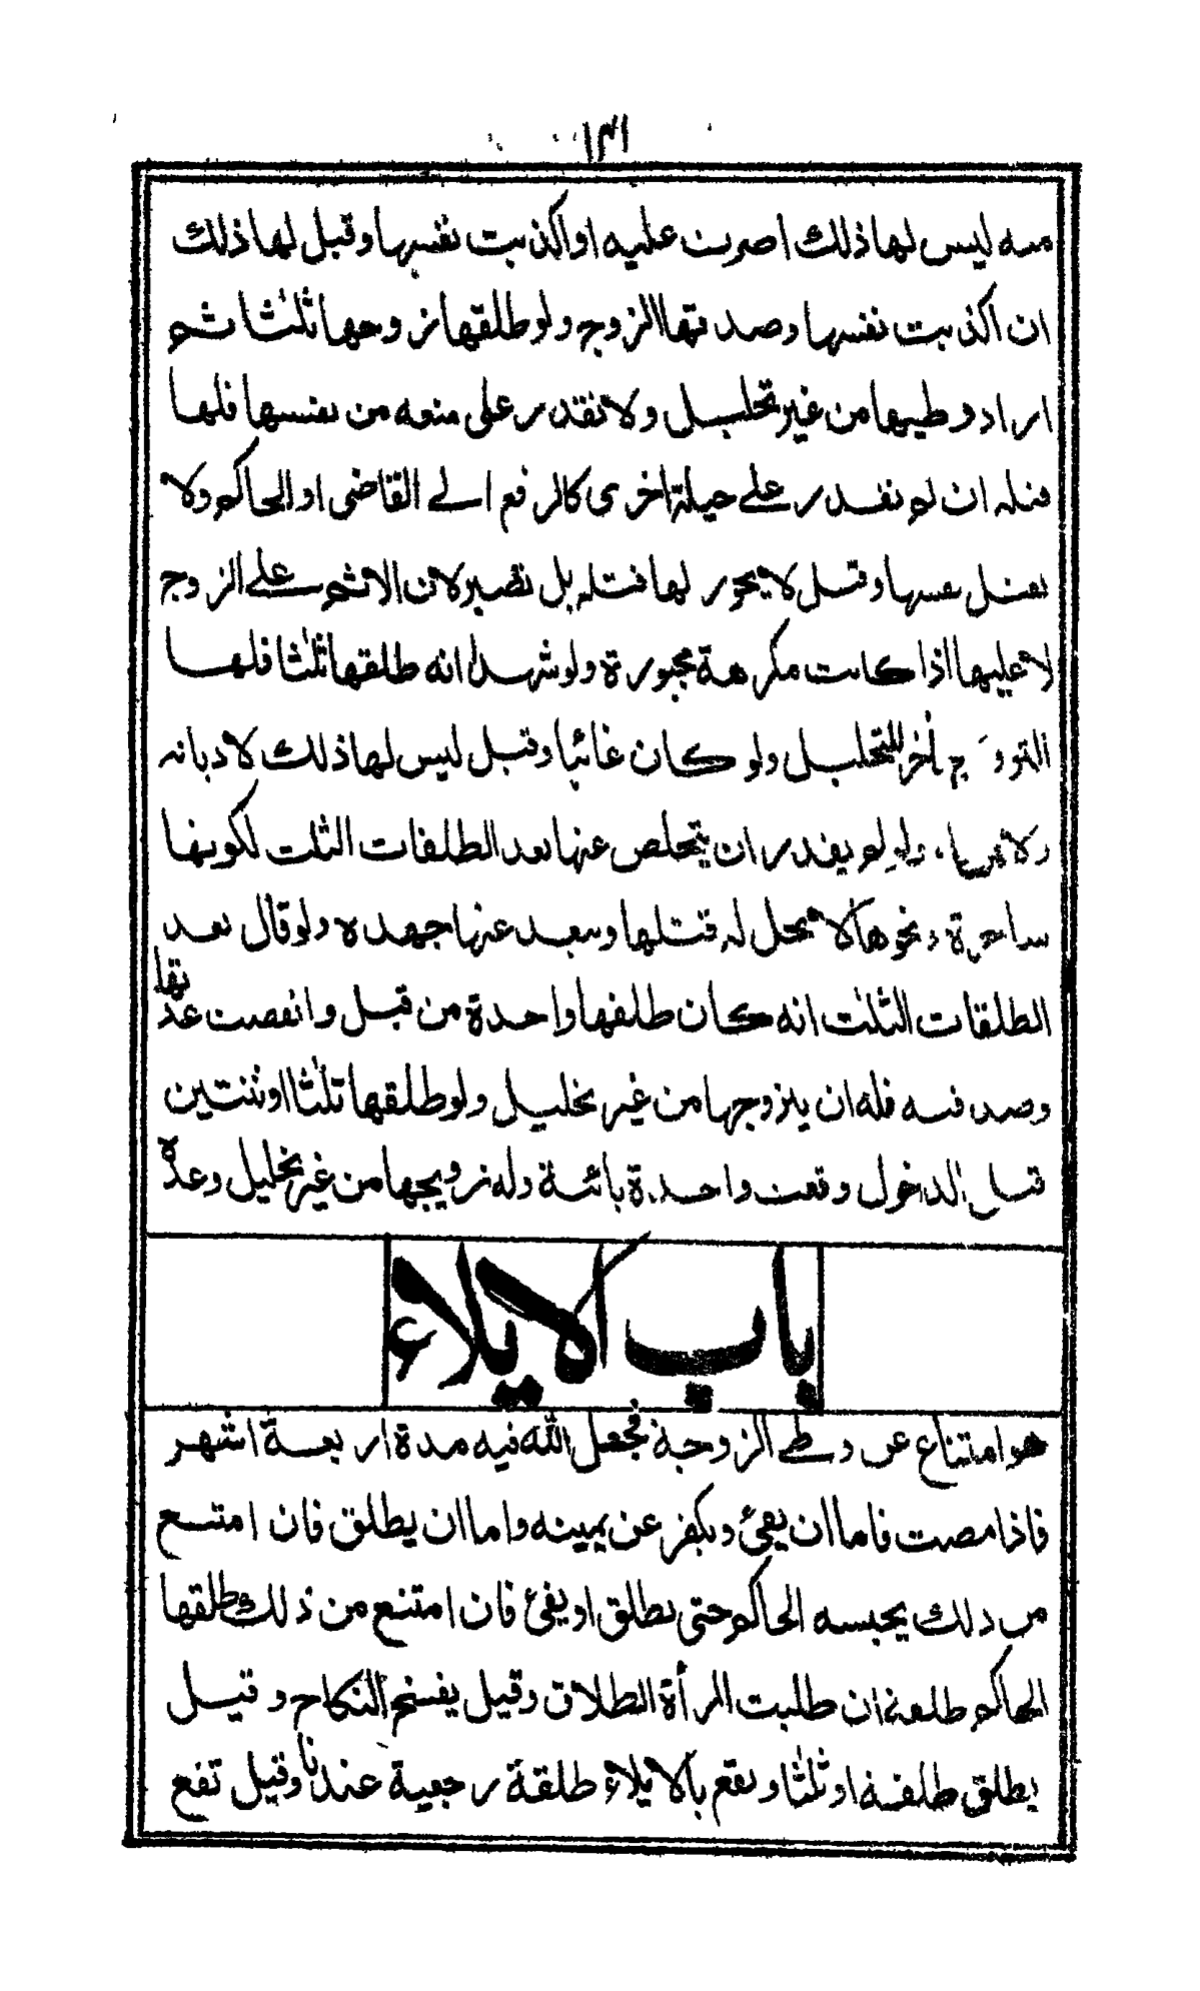 ١٣١
منه ليس لها ذلك اصرت عليه او اكذبت نفسها وقيل لها ذلك
ان اكذبت نفسها وصدقها الزوج ولو طلقها زوجها ثلثا ثم
اراد وطيها من غير تحليل ولا تقدر على منعه من نفسها فلها
قتله ان لم تقدر على حيلة اخرى كالرفع الى القاضى او الحاكم ولا
تقتل نفسها وقيل لا يجوز لها قتله بل تصير لان الاثم على الزوج
لا عليها اذا كانت مكرهة مجبورة ولو شهدا انه طلقها ثلثا فلها
التزوج بآخر للتحليل ولو كان غائبا وقيل ليس لها ذلك لا ديانة
ولا ولو لم يقدر ان يتخلص عنها بعد الطلقات الثلث لكونها
ساحرة ونحوها لا يحل له قتلها وسعيد عنها جهده ولو قال بعد
الطلقات الثلث انه كان طلقها واحدة من قبل وانقضت عدتها
وصدقته فله ان يتزوجها من غير تحليل ولو طلقها ثلثا او ثنتين
قبل الدخول وقعت واحدة بائنة وله تزويجها من غير تحليل وعدة
باب الايلاء
هو امتناع عن وطى الزوجة فجعل الله فيه مدة اربعة اشهر
فاذا مضت فاما ان يفئ ويكفر عن يمينه واما ان يطلق فان امتنع
من ذلك يحبسه الحاكم حتى يطلق او يفئ فان امتنع من ذلك طلقها
الحاكم طلقة ان طلبت المرأة الطلاق وقيل يفسخ النكاح وقيل
يطلق طلقة او ثلثا ويقع بالايلاء طلقة رجعية عندنا وقيل تقع